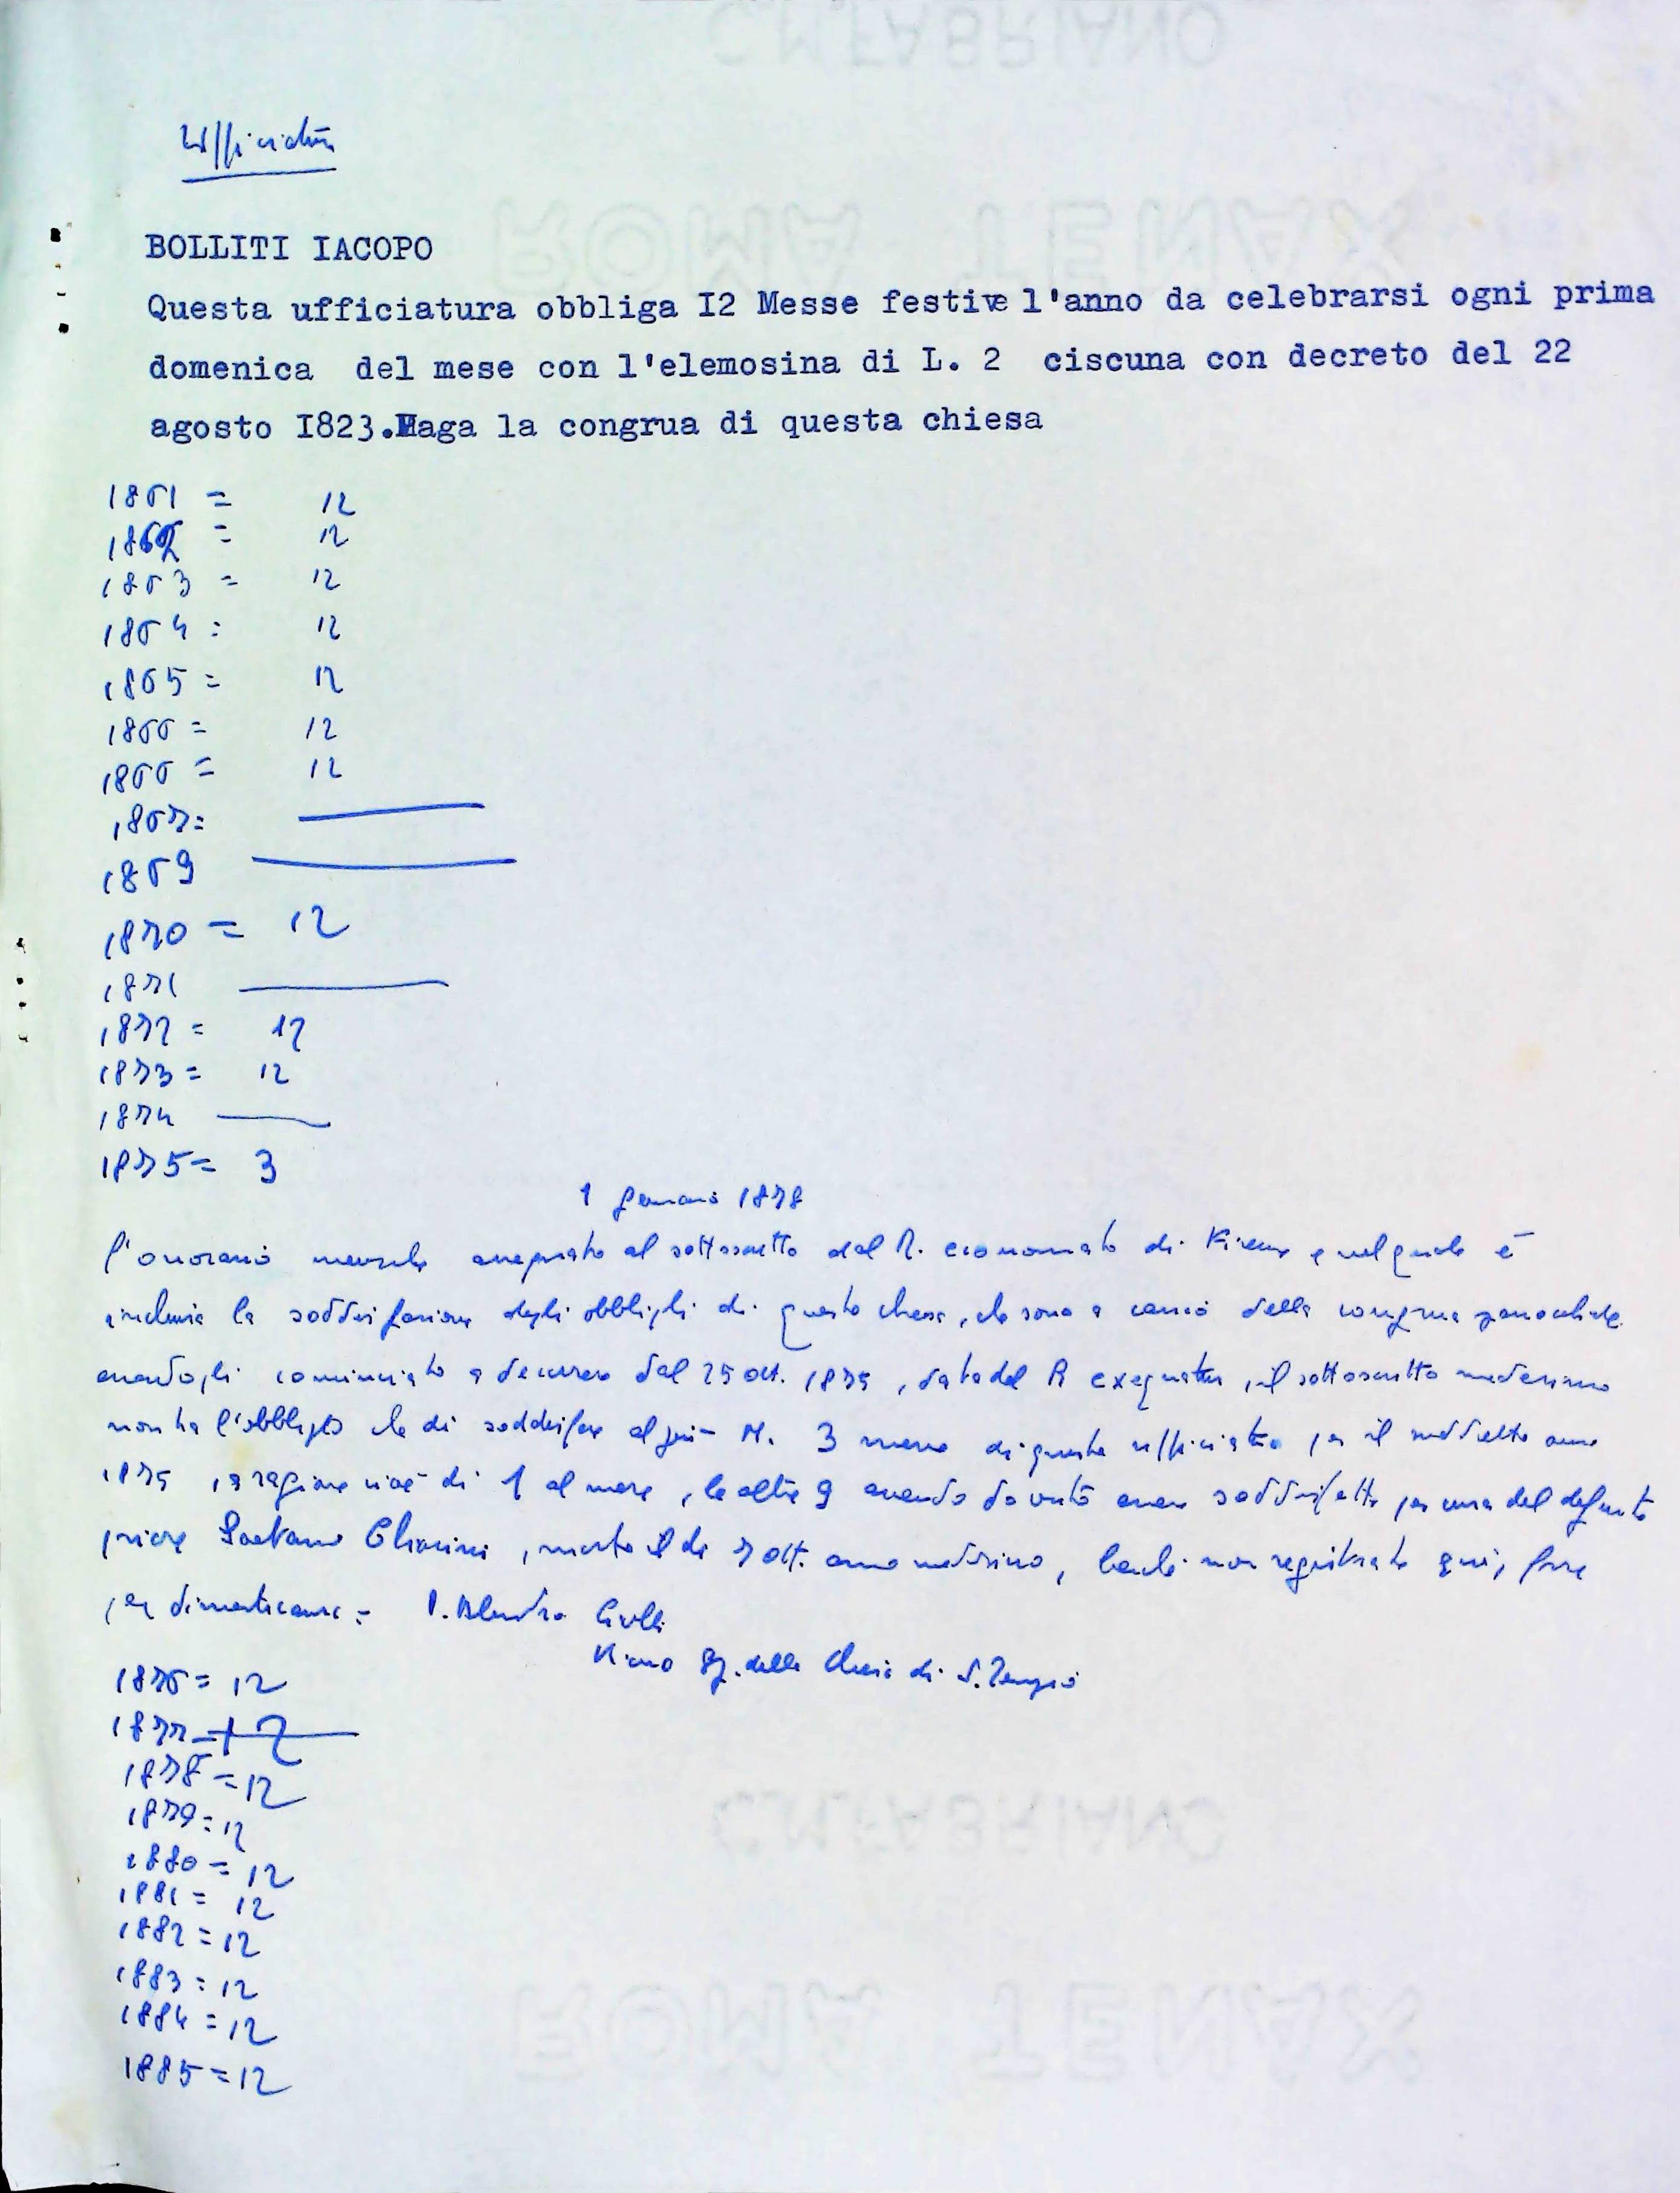 C.M.FABRIANO
Ufficiatura
ROMA TENAX
BOLLITI IACOPO
Questa ufficiatura obbliga I2 Messe festive l'anno da celebrarsi ogni prima
domenica del mese con l'elemosina di L. 2 ciscuna con decreto del 22
agosto I823. Haga la congrua di questa chiesa
1861 = 12
1862 = 12
1863 = 12
1864 : 12
1865 = 12
1866 = 12
1866 = 12
1867 =
1869
1870 = 12
1871
1872 = 12
1873 = 12
1874
1875 = 3
1 gennaio 1878
l'onorario mensile assegnato al sottoscritto dal R. economato di Firenze e nel quale è
inclusa la soddisfazione degli obblighi di questa chiesa, che sono a carico della congrua parrocchiale
avendogli cominciato a decorrere dal 25 ott. 1875, data del R exequatur, il sottoscritto medesimo
non ha l'obbligo che di soddisfare al più N. 3 messe di questa ufficiatura per il suddetto anno
1875, a ragione cioè di 1 al mese, le altre 9 avendo dovuto essere soddisfatte per cura del defunto
priore Gaetano, morto il dì 7 ott. anno medesimo, benché non registrate qui, forse
per dimenticanza =
della Chiesa di S.
1876 = 12
1877 = 12
1878 = 12
1879 = 12
C.M.FABRIANO
1880 = 12
1881 = 12
1882 = 12
1883 = 12
1884 = 12
ROMA TENAX
1885 = 12